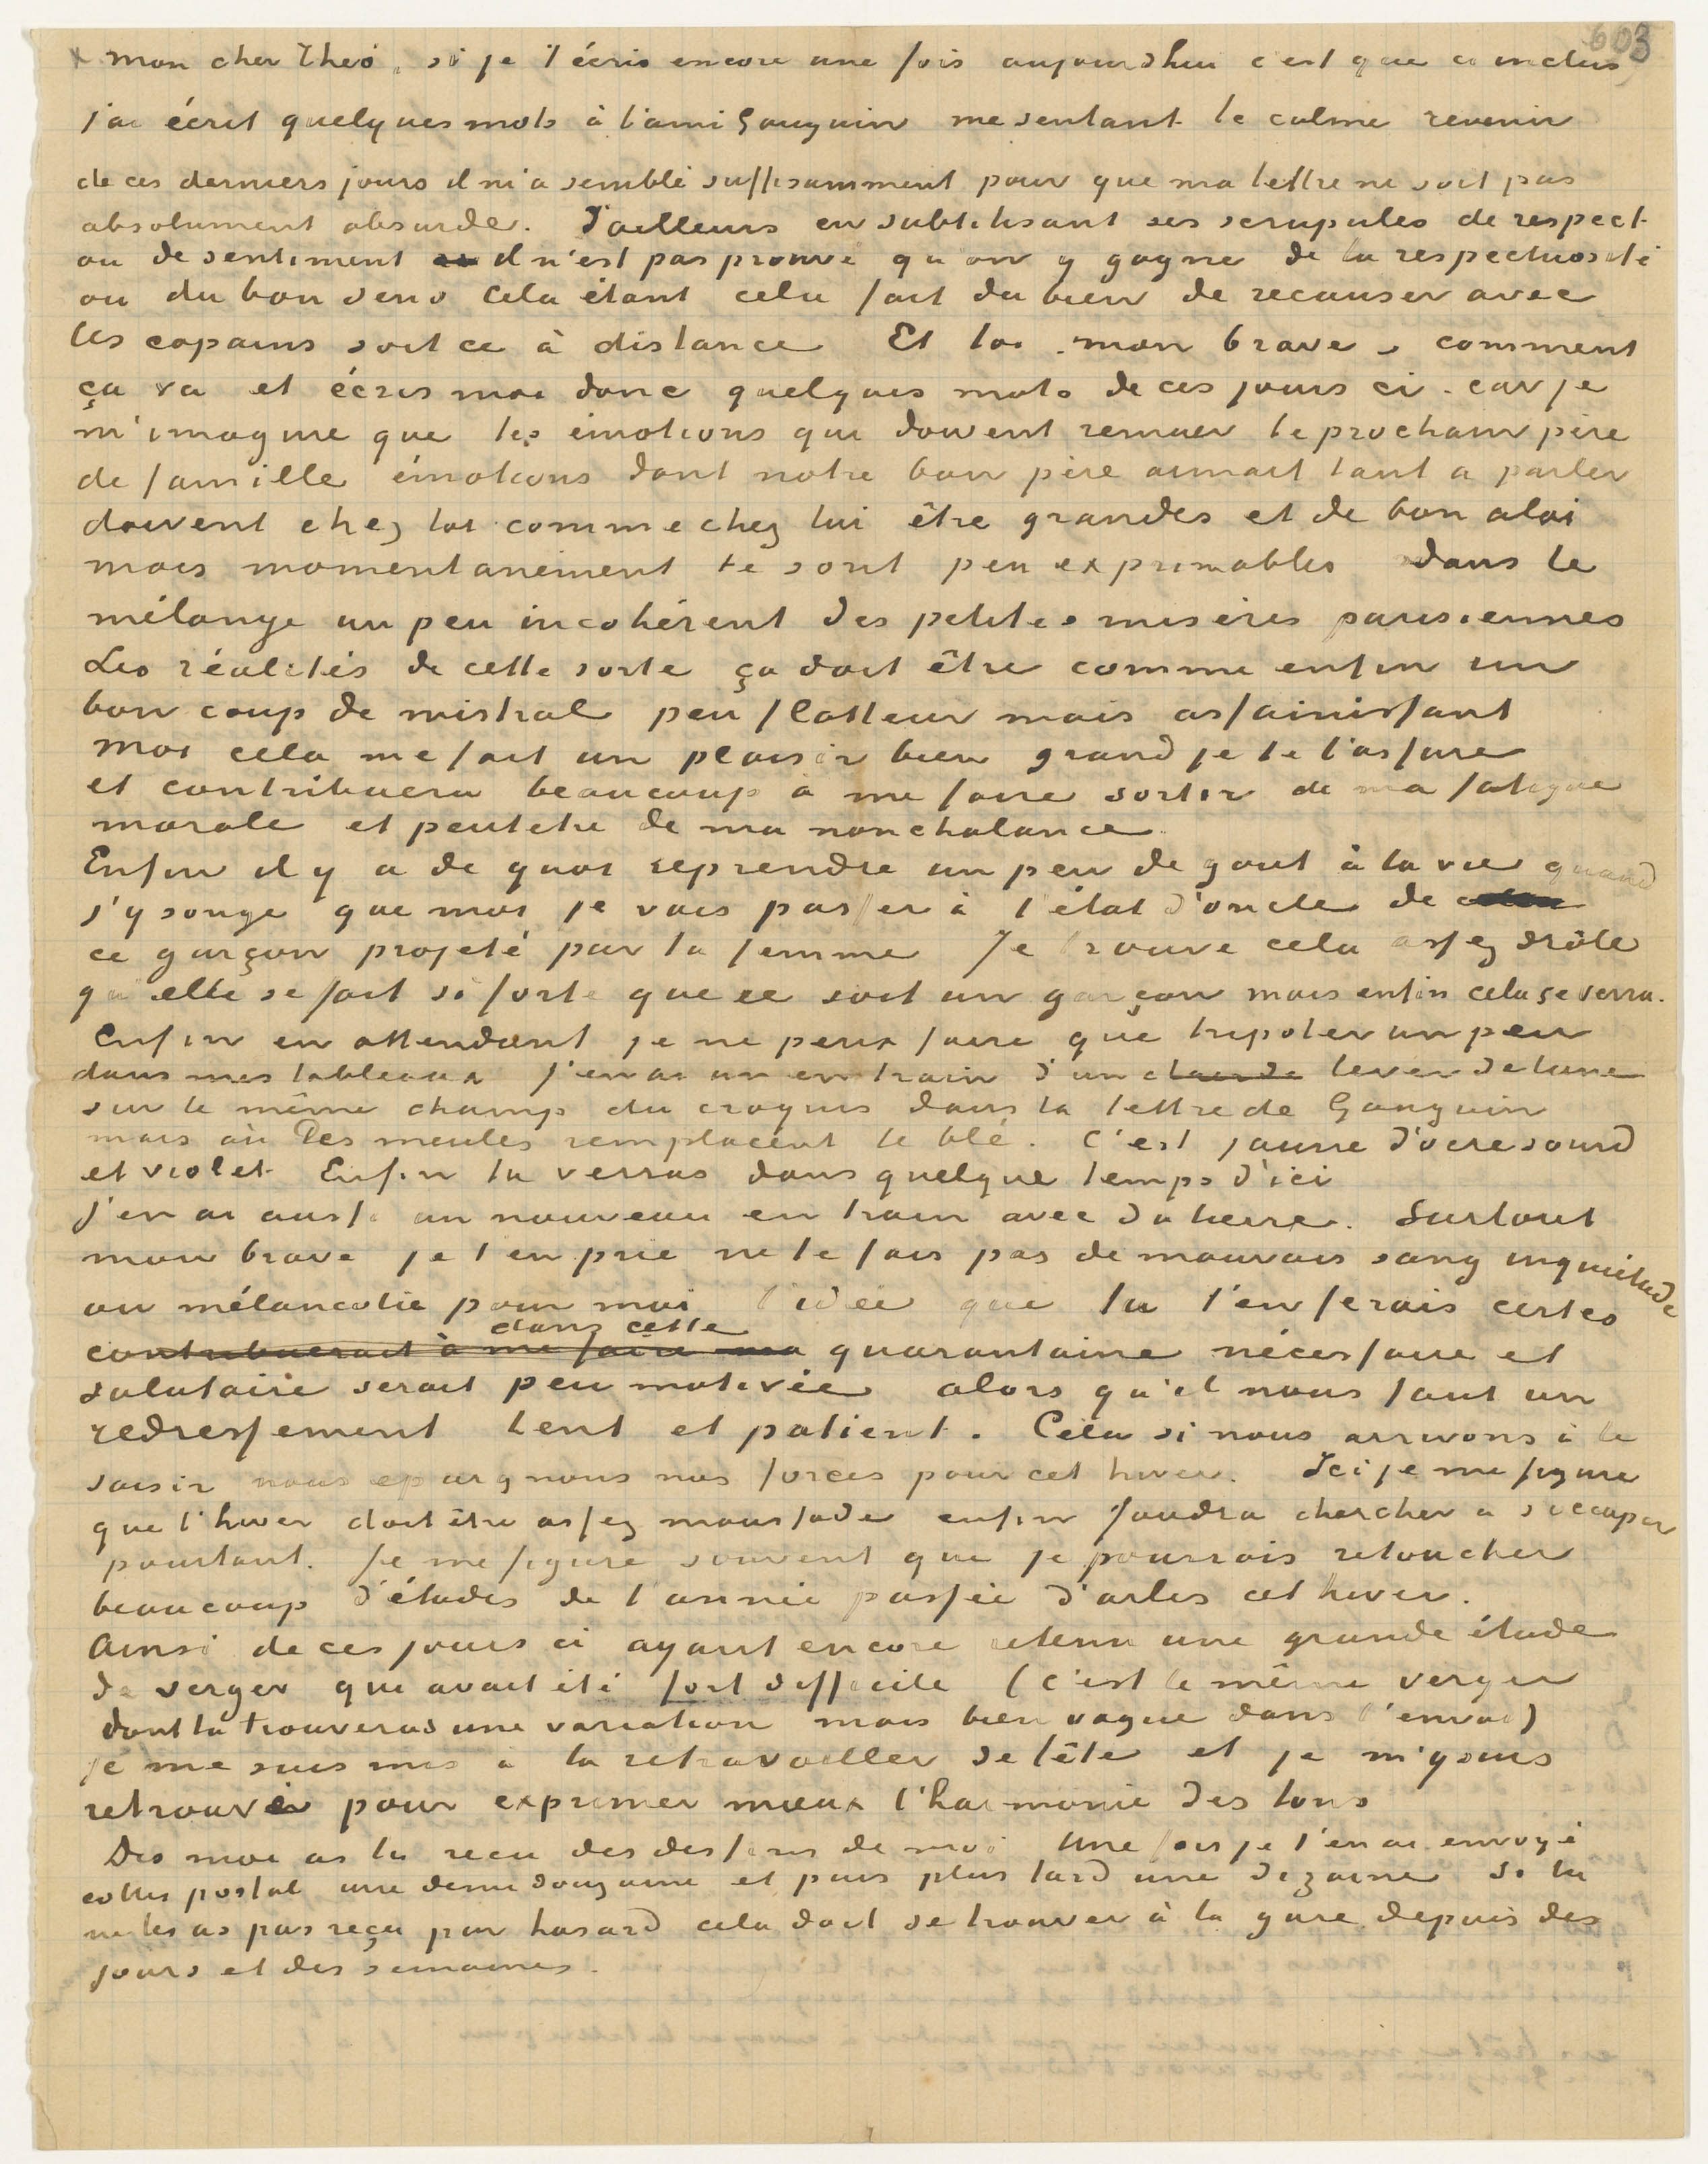 603
mon cher Theo, si je t'écris encore une fois aujourdhui c'est que ci inclus
j'ai écrit quelques mots à l'ami Gauguin me sentant le calme revenir
de ces derniers jours il m'a semblé suffisamment pour que ma lettre ne soit pas
absolument absurde. D'ailleurs en subtilisant ses scrupules de respect
ou de sentiment il n'est pas prouvé qu'on y gagne de la respectuosité
ou du bon sens Cela étant cela fait du bien de recauser avec
les copains soit ce à distance Et toi mon brave, comment
ça va et écris moi donc quelques mots de ces jours ci. car je
m'imagine que les émotions qui doivent remuer le prochain père
de famille émotions dont notre bon père aimait tant a parler
doivent chez toi comme chez lui être grandes et de bon aloi
mais momentanément te sont peu exprimables dans le
mélange un peu incohérent des petites misères parisiennes
Les réalités de cette sorte ça doit être comme enfin un
bon coup de mistral peu flatteur mais assainissant
Moi cela me fait un plaisir bien grand je te l'assure
et contribuera beaucoup à me faire sortir de ma fatigue
morale et peutetre de ma nonchalance.
Enfin il y a de quoi reprendre un peu de gout à la vie quand
j'y songe que moi je vais passer à l'état d'oncle de
ce garçon projeté par ta femme Je trouve cela assez drôle
qu'elle se fait si forte que ce soit un garçon mais enfin cela se verra.
Enfin en attendant je ne peux faire que tripoter un peu
dans mes tableaux J'en ai un en train d'un clair de lever de lune
sur le même champ du croquis dans la lettre de Gauguin
mais où des meules remplacent le blé. C'est jaune d'ocre sourd
et violet Enfin tu verras dans quelque temps d'ici
J'en ai aussi un nouveau en train avec du lierre. Surtout
mon brave je t'en prie ne te fais pas de mauvais sang inquiétude
ou mélancolie pour moi l'idée que tu t'en ferais certes
dans cette
contribuerait à me faire ma quarantaine nécessaire et
salutaire serait peu motivée alors qu'il nous faut un
redressement lent et patient. Cela si nous arrivons à le
saisir nous epargnons nos forces pour cet hiver. Ici je me figure
que l'hiver doit être assez maussade enfin faudra chercher a s'occuper
pourtant. Je me figure souvent que je pourrais retoucher
beaucoup d'études de l'année passée d'arles cet hiver.
Ainsi de ces jours ci ayant encore retenu une grande étude
de verger qui avait été fort difficile (c'est le même verger
dont tu trouveras une variation mais bien vague dans l'envoi)
je me suis mis à la retravailler de tête et je m'y suis
retrouvé pour exprimer mieux l'harmonie des tons
Dis moi as tu recu des dessins de moi Une fois je t'en ai envoyé
colis postal une demi douzaine et puis plus tard une dizaine Si tu
ne les as pas reçu par hasard cela doit se trouver à la gare depuis des
jours et des semaines.